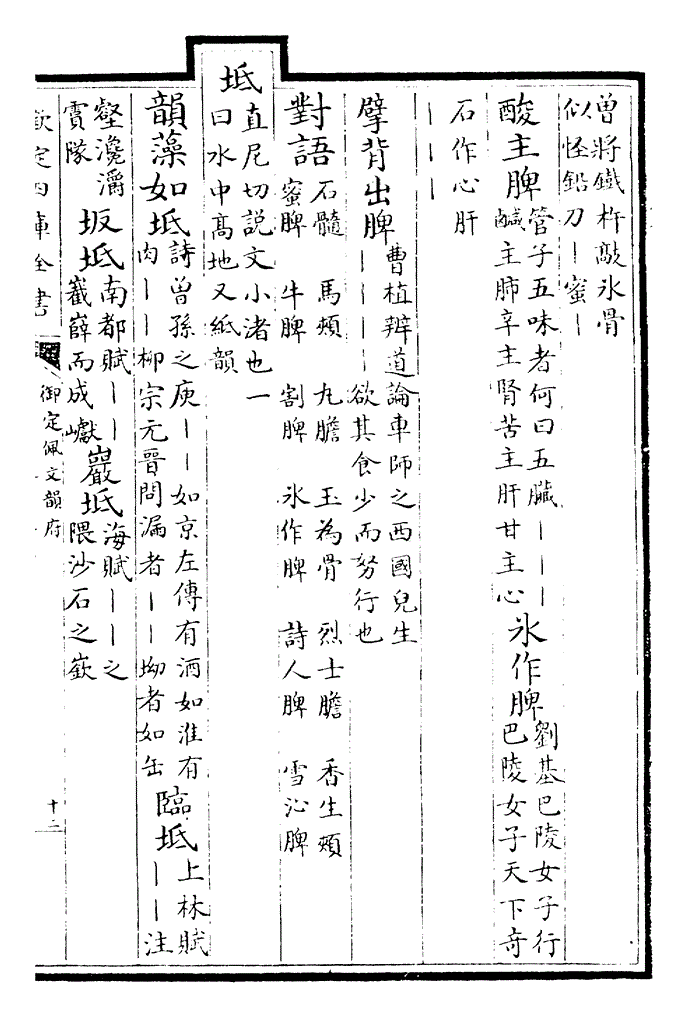 曾將鐵杵敲氷骨
似怪鉛刀丨蜜丨
酸主脾
管子五味者何曰五臓丨丨丨
鹹主肺辛主腎苦主肝甘主心
氷作脾
劉基巴陵女子行
巴陵女子天下竒
石作心肝
丨丨丨
擘背出脾
曹植辨道論車師之西國兒生
丨丨丨丨欲其食少而努行也
對語
石髓 馬頰 九膽 玉為骨 烈士膽 香生頰
蜜脾 牛脾 割脾 氷作脾 詩人脾 雪沁脾
坻
直尼切説文小渚也一
曰水中髙地又紙韻
韻藻
如坻
詩曾孫之庾丨丨如京左傳有酒如淮有
肉丨丨柳宗元晉問漏者丨丨坳者如缶
臨坻
上林賦
丨丨注
壑瀺灂
霣隊
坂坻
南都賦丨丨
嶻嶭而成巘
巖坻
海賦丨丨之
隈沙石之嶔
欽定四庫全書
御定佩文韻府
十二